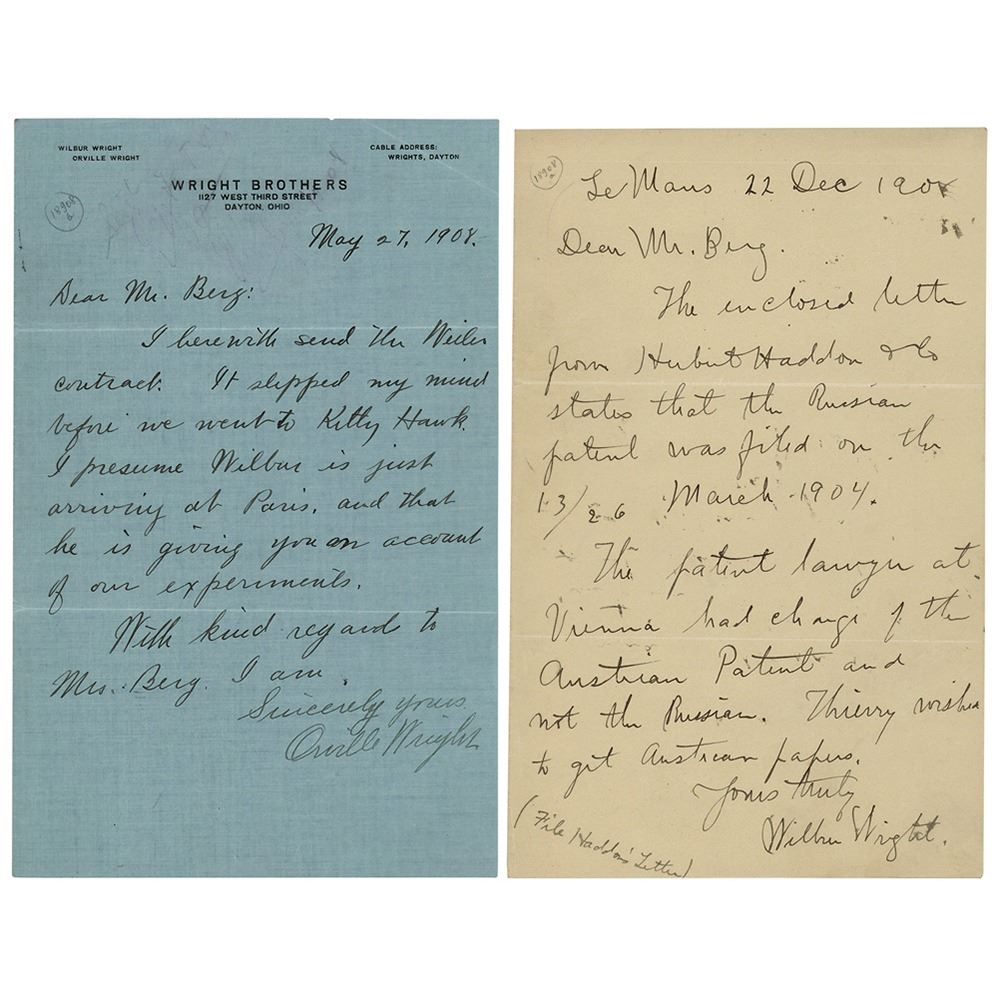 WILBUR WRIGHT
ORVILLE WRIGHT
CABLE ADDRESS:
WRIGHTS, DAYTON
WRIGHT BROTHERS
1127 WEST THIRD STREET
DAYTON, OHIO
18908
a
May 27, 1908.
Dear Mr. Berg:
I herewith send the Weiler
contract. It slipped my mind
before we went to Kitty Hawk.
I presume Wilbur is just
arriving at Paris, and that
he is giving you an account
of our experiments.
With kind regard to
Mrs. Berg. I am,
Sincerely yours.
Orville Wright
18908
a
Le Mans 22 Dec 1908
Dear Mr. Berg.
The enclosed letter
from Herbert Haddon & Co
states that the Russian
patent was filed on the
13/26 March 1904.
The patent lawyer at
Vienna had charge of the
Austrian Patent and
not the Russian. Thierry wished
to get Austrian papers.
Yours truly
Wilbur Wright.
(File Haddon's Letter)